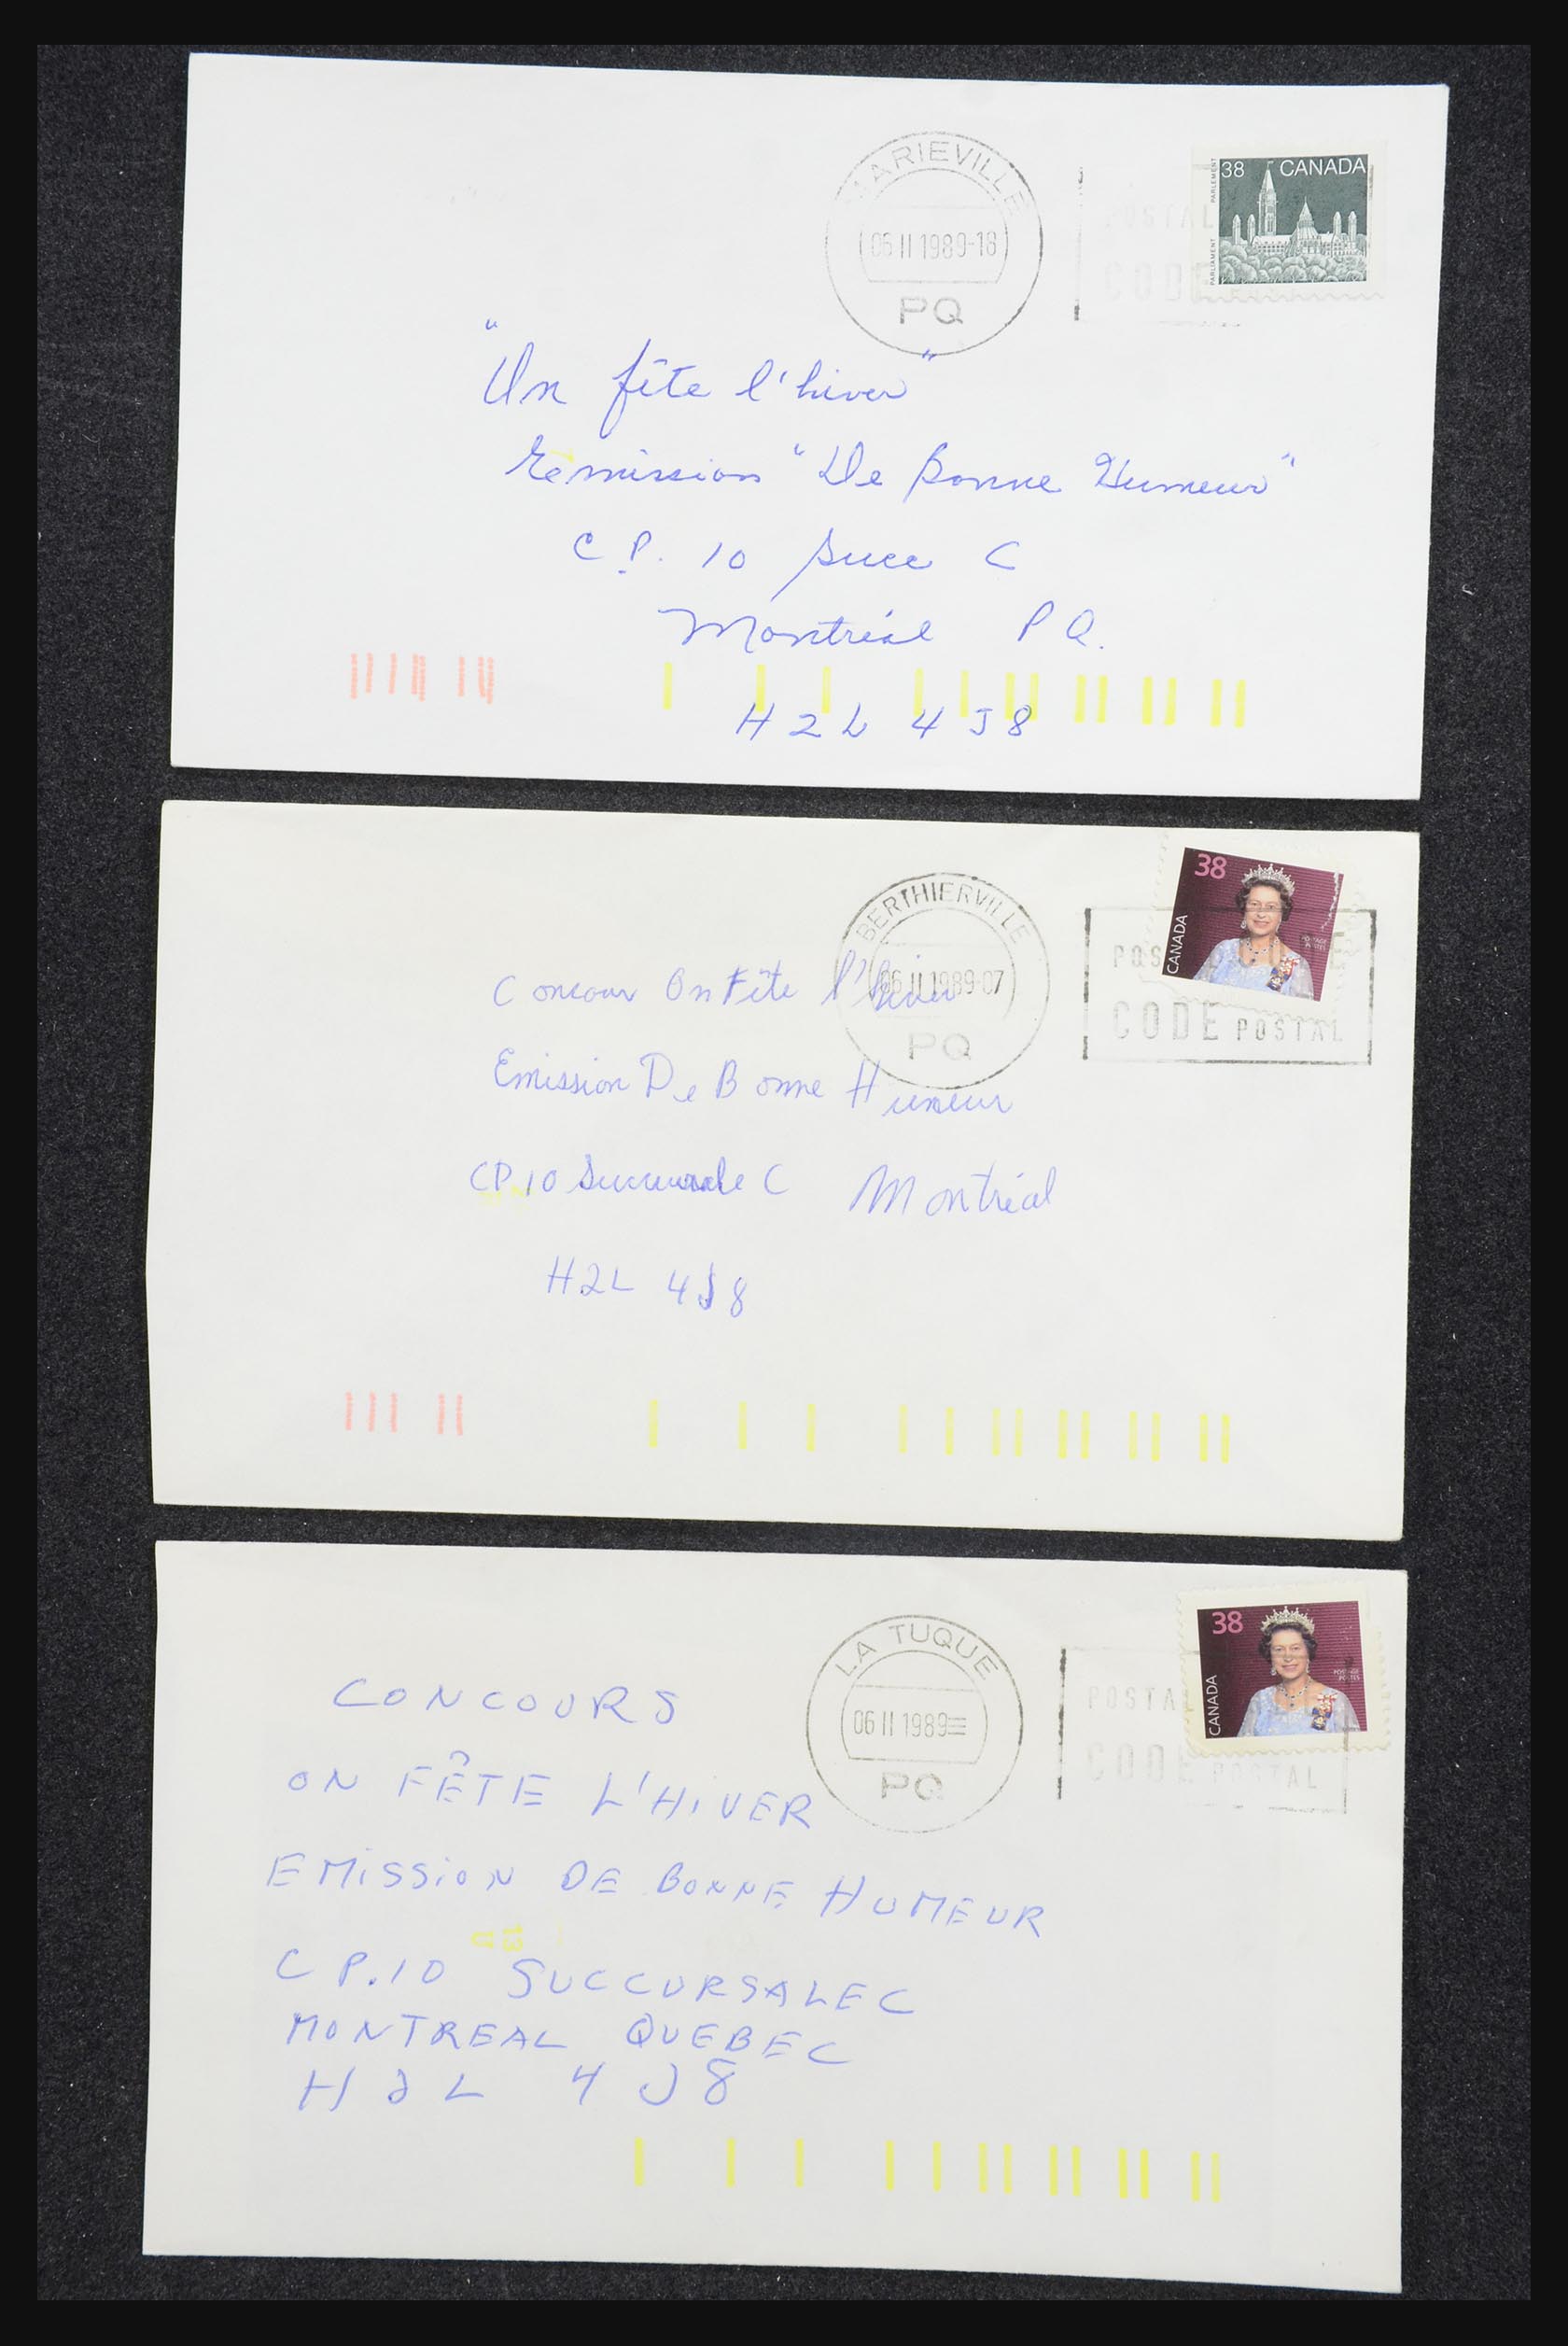 MARIEVILLE
06 II 1989-18
PQ
POSTAL
CODE
38 CANADA
PARLIAMENT PARLEMENT
"Un fête l'hiver"
Émission "De Bonne Humeur"
C.P. 10 Succ C
Montréal P Q.
H2L 4J8
BERTHIERVILLE
06 II 1989-07
PQ
CODE POSTAL
38
CANADA
POSTAGE
POSTES
Concour On Fête l'hiver
Emission De Bonne Humeur
CP.10 Succursale C Montréal
H2L 4J8
LA TUQUE
06 II 1989
PQ
POSTA
CODE POSTAL
38
CANADA
POSTAGE
POSTES
CONCOURS
ON FÊTE L'HIVER
EMISSION DE BONNE HUMEUR
C P.10 SUCCURSALE C
MONTREAL QUEBEC
H2L 4J8